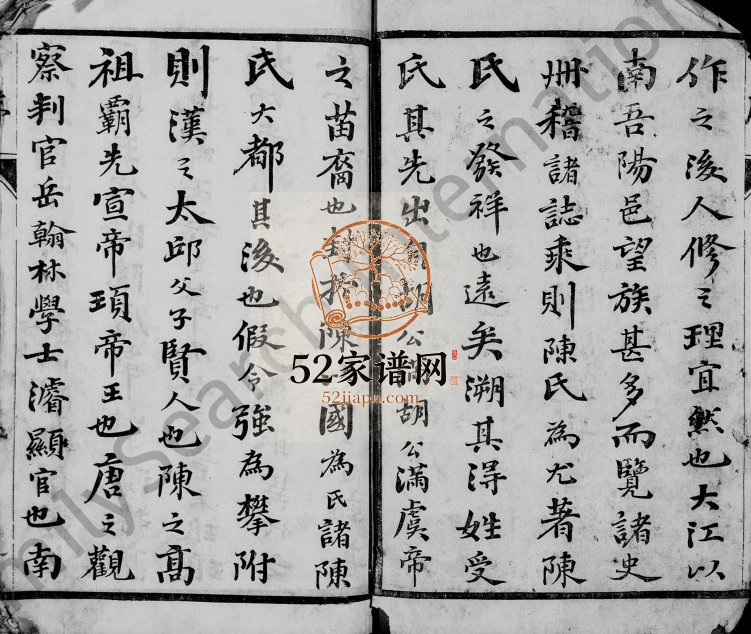 作之後人修之理宜然也大江以
南吾陽邑望族甚多而覽諸史
冊稽諸誌乘則陳氏為尤著陳
氏之發祥也遠矣溯其得姓受
氏其先出胡公滿胡公滿虞帝
之苗裔也封於陳國為氏諸陳
氏大都其後也假令強為攀附
則漢之太邱父子賢人也陳之高
祖霸先宣帝頊帝王也唐之觀
察判官岳翰林學士濬顯官也南
52家谱网
52jiapu.com
FamilySearch International